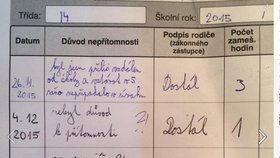 Třída: 14 Školní rok: 2015 /
Datum Důvod nepřítomnosti Podpis rodiče (zákonného zástupce) Počet zameš. hodin
26. 11. 2015 byl jsem příliš vzdálen od školy a Dostál 3
4. 12 2015 nebyl důvod k přítomnosti ?! Dostál 1